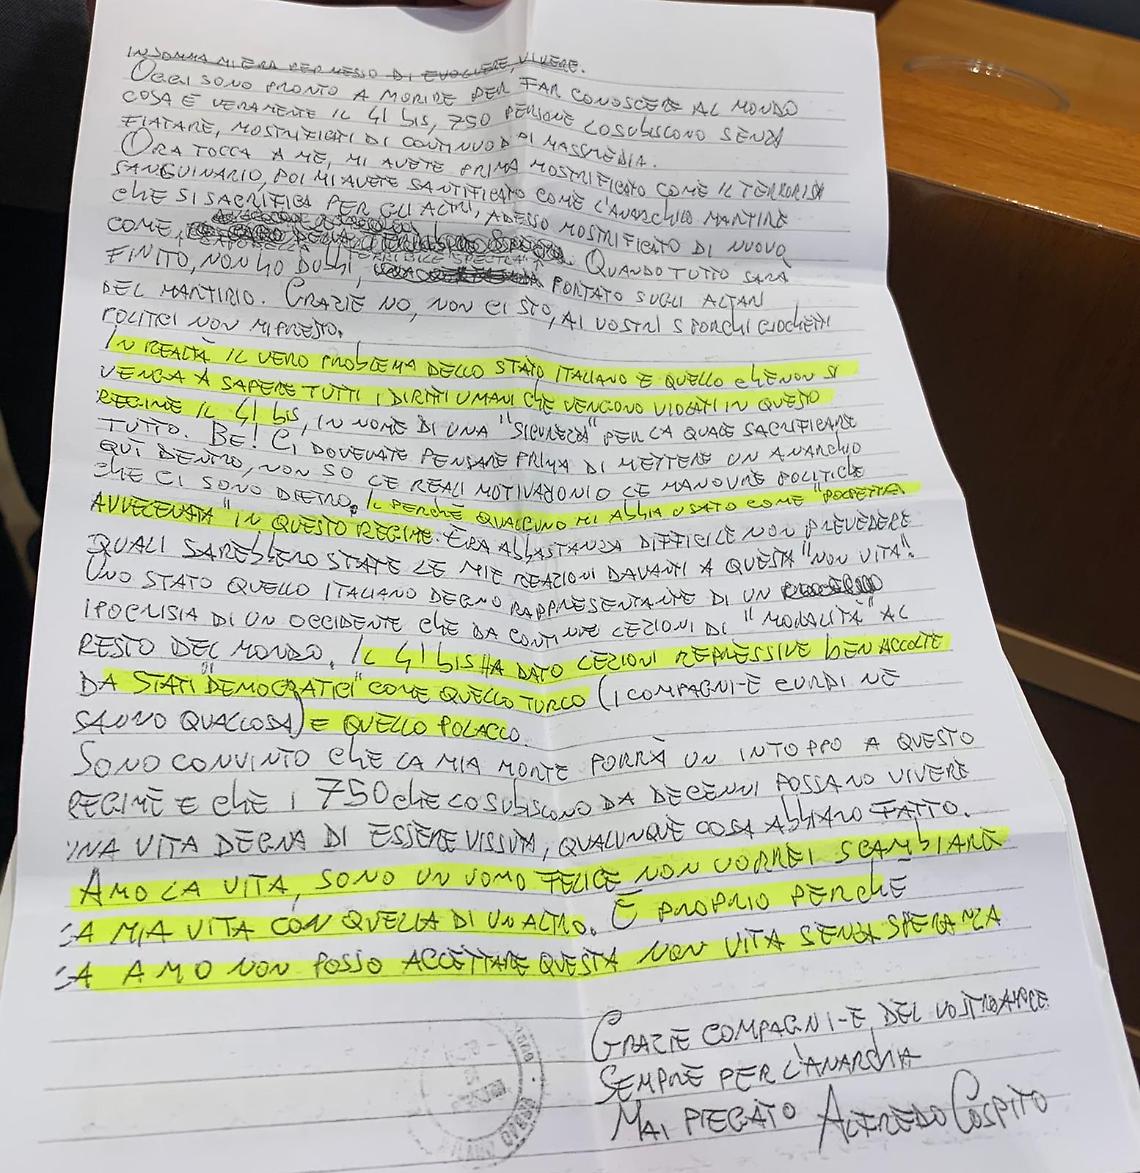 INSOMMA MI ERA PERMESSO DI EVOLVERE, VIVERE.
OGGI SONO PRONTO A MORIRE PER FAR CONOSCERE AL MONDO
COSA È VERAMENTE IL 41 bis, 750 PERSONE LO SUBISCONO SENZA
FIATARE, MOSTRIFICATI DI CONTINUO DAI MASSMEDIA.
ORA TOCCA A ME, MI AVETE PRIMA MOSTRIFICATO COME IL TERRORISTA
SANGUINARIO, POI MI AVETE SANTIFICATO COME L'ANARCHICO MARTIRE
CHE SI SACRIFICA PER GLI ALTRI, ADESSO MOSTRIFICATO DI NUOVO
COME, QUANDO TUTTO SARÀ
FINITO, NON HO DUBBI, PORTATO SUGLI ALTARI
DEL MARTIRIO. GRAZIE NO, NON CI STO, AI VOSTRI SPORCHI GIOCHETTI
POLITICI NON MI PRESTO.
IN REALTÀ IL VERO PROBLEMA DELLO STATO ITALIANO È QUELLO CHE NON SI
VENGA A SAPERE TUTTI I DIRITTI UMANI CHE VENGONO VIOLATI IN QUESTO
REGIME IL 41 bis, IN NOME DI UNA "SICUREZZA" PER LA QUALE SACRIFICARE
TUTTO. BE! CI DOVEVATE PENSARE PRIMA DI METTERE UN ANARCHICO
QUI DENTRO, NON SO LE REALI MOTIVAZIONI O LE MANOVRE POLITICHE
CHE CI SONO DIETRO. IL PERCHÉ QUALCUNO MI ABBIA USATO COME "POLPETTA
AVVELENATA" IN QUESTO REGIME. ERA ABBASTANZA DIFFICILE NON PREVEDERE
QUALI SAREBBERO STATE LE MIE REAZIONI DAVANTI A QUESTA "NON VITA".
UNO STATO QUELLO ITALIANO DEGNO RAPPRESENTANTE DI UN
IPOCRISIA DI UN OCCIDENTE CHE DA CONTINUE LEZIONI DI "MODALITÀ" AL
RESTO DEL MONDO. IL 41 bis HA DATO LEZIONI REPRESSIVE BEN ACCOLTE
DA STATI "DEMOCRATICI" COME QUELLO TURCO (I COMPAGNI-E CURDI NE
SANNO QUALCOSA) E QUELLO POLACCO.
SONO CONVINTO CHE LA MIA MORTE PORRÀ UN INTOPPO A QUESTO
REGIME E CHE I 750 CHE LO SUBISCONO DA DECENNI POSSANO VIVERE
UNA VITA DEGNA DI ESSERE VISSUTA, QUALUNQUE COSA ABBIANO FATTO.
AMO LA VITA, SONO UN UOMO FELICE NON VORREI SCAMBIARE
LA MIA VITA CON QUELLA DI UN ALTRO. E PROPRIO PERCHÉ
LA AMO NON POSSO ACCETTARE QUESTA NON VITA SENZA SPERANZA
GRAZIE COMPAGNI-E DEL VOSTRO AMORE
SEMPRE PER L'ANARCHIA
MAI PIEGATO ALFREDO COSPITO